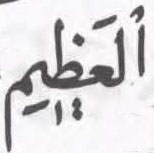 ٱلعَظِيم